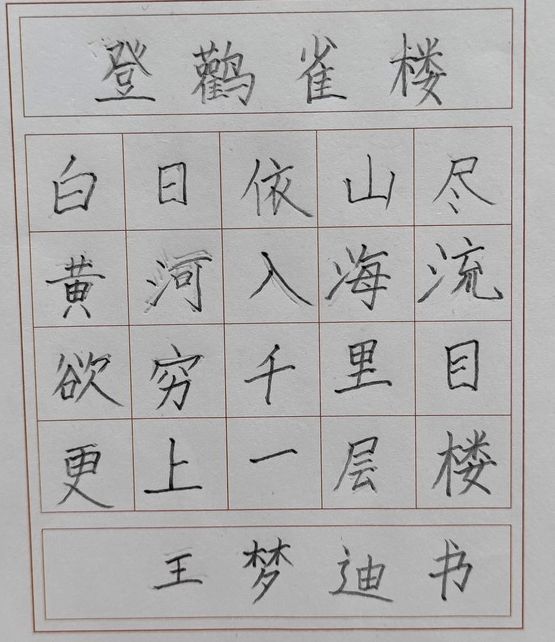 登鹳雀楼
白日依山尽
黄河入海流
欲穷千里目
更上一层楼
王梦迪书